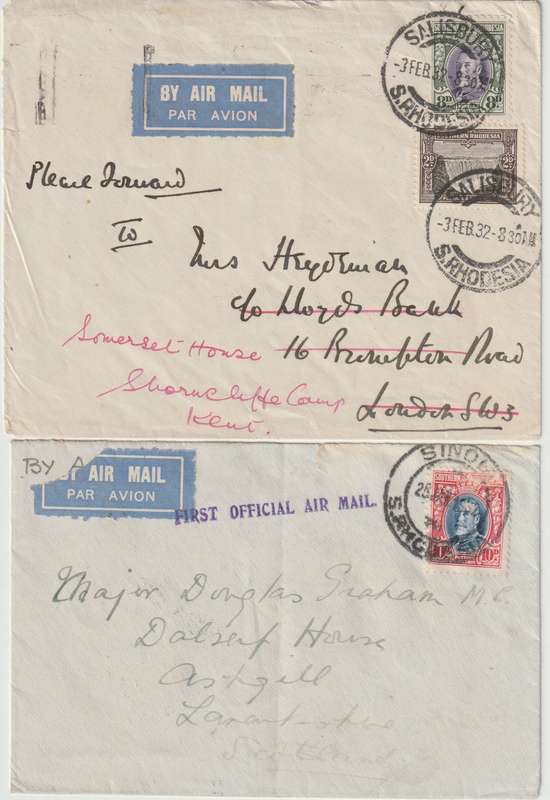 SALISBURY
-3 FEB. 32 - 8
S. RHODESIA
8D 8D
BY AIR MAIL
PAR AVION
SOUTHERN RHODESIA
2D 2D
SALISBURY
-3 FEB. 32 - 8 30AM
S. RHODESIA
Please Forward
To
Mrs Heydeman
c/o Lloyds Bank
Somerset House 16 Brompton Road
Shorncliffe Camp
London SW3
Kent.
BY A
BY AIR MAIL
PAR AVION
10D
FIRST OFFICIAL AIR MAIL.
Major Douglas Graham M.C.
Dalserf House
Ashgill
Lanarkshire
Scotland